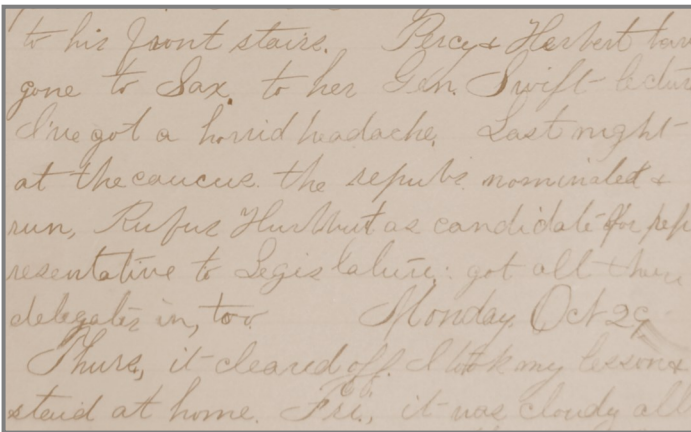 to his front stairs. Percy & Herbert have
gone to Sax. to her Gen. Swift lectur
I've got a horrid headache. Last night
at the caucus the repubs. nominated &
run, Rufus Hurlbut as candidate for rep
resentative to Legislature: got all their
delegates in, too. Monday Oct 29
Thurs, it cleared off. I took my lesson &
staid at home. Fri., it was cloudy all